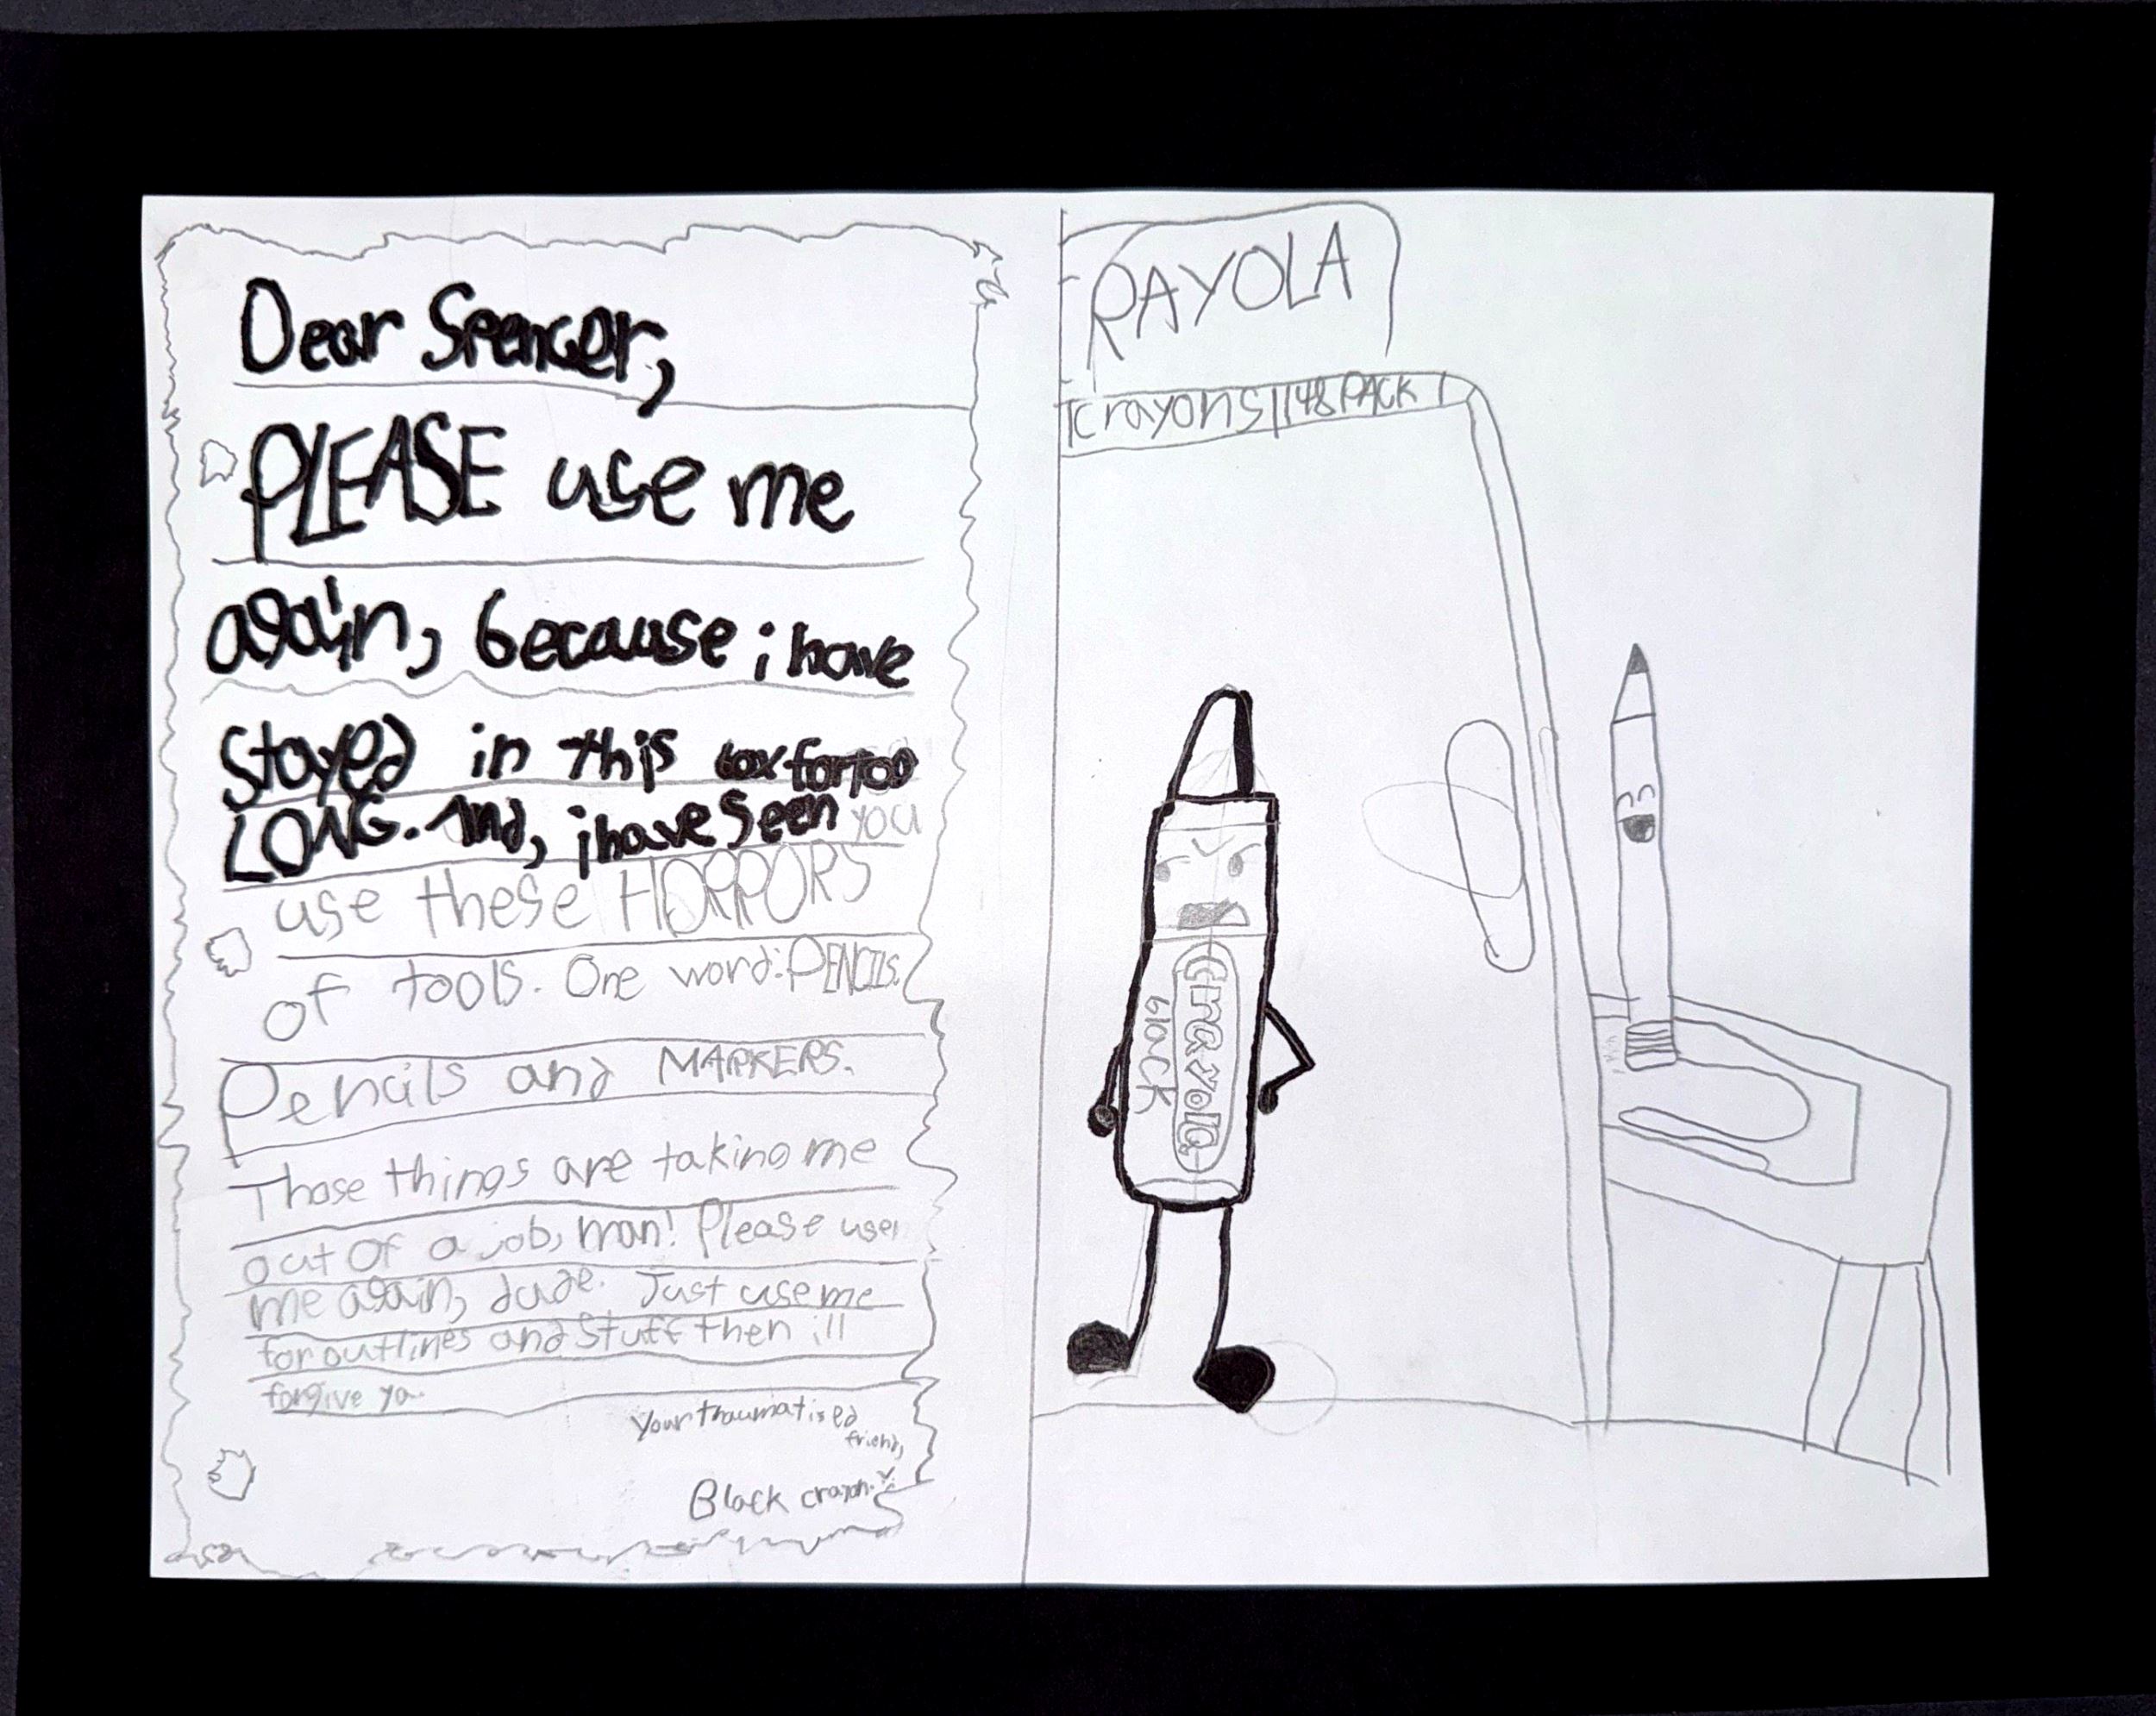 Dear Spencer,
PLEASE use me
again, because i have
stayed in this box for too
LONG. And, i have seen you
use these HORRORS
of tools. One word: PENCILS.
Pencils and MARKERS.
Those things are taking me
out of a job, man! Please use
me again, dude. Just use me
for outlines and stuff then ill
forgive yo
Your traumatised
friend,
Black crayon.
RAYOLA
crayons 148 PACK
Crayola
black